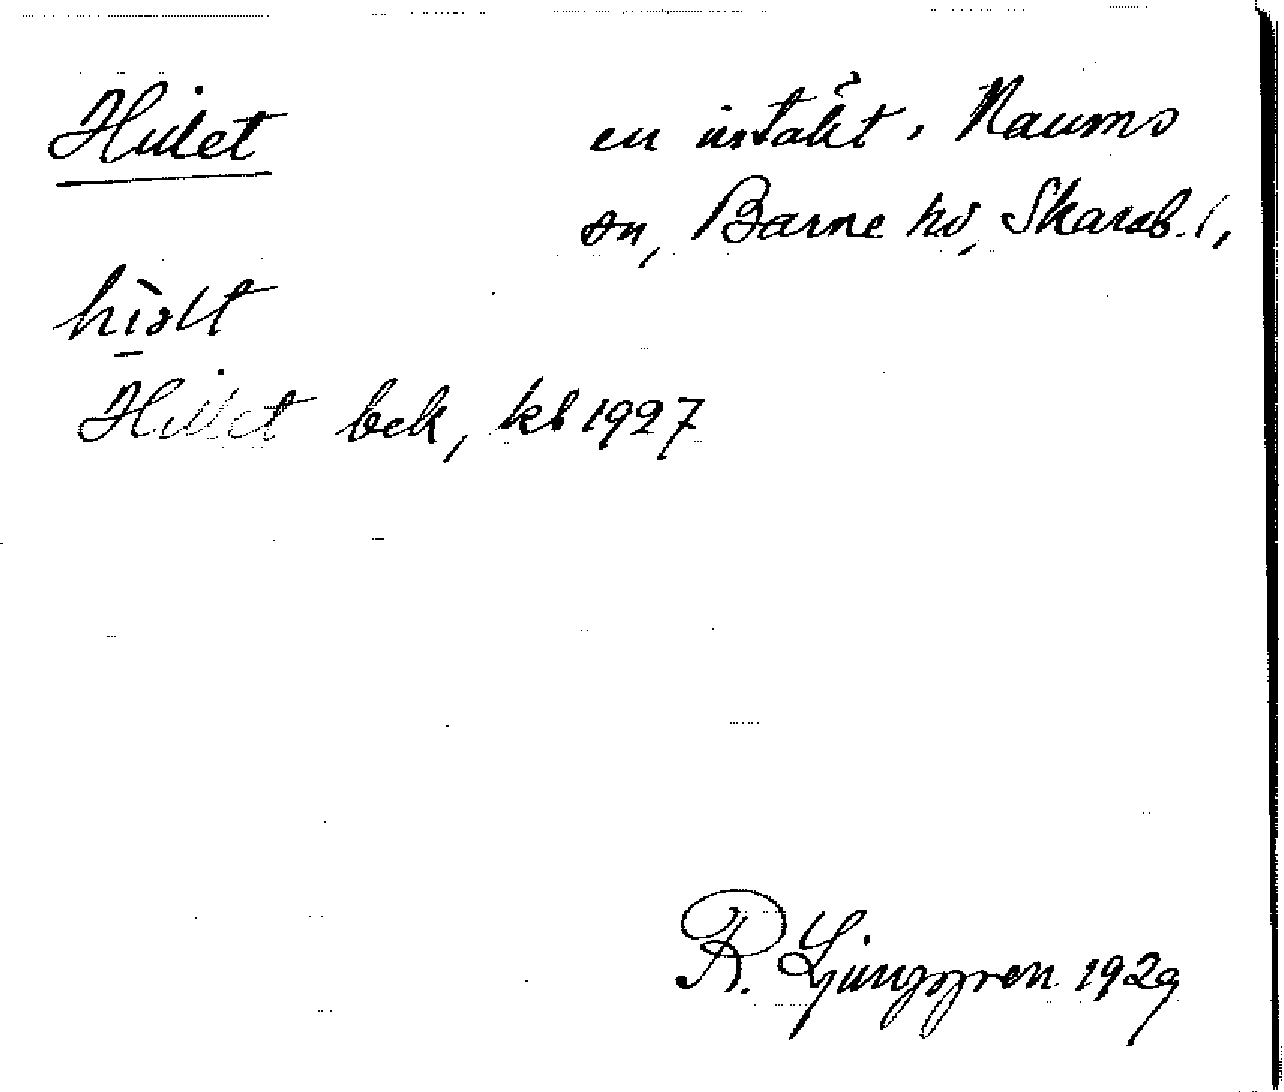 Hidet
en intäkt, Naums
sn, Barne hd, Skarab. l,
Hillet bek, kb 1927
R. Ljunggren 1929